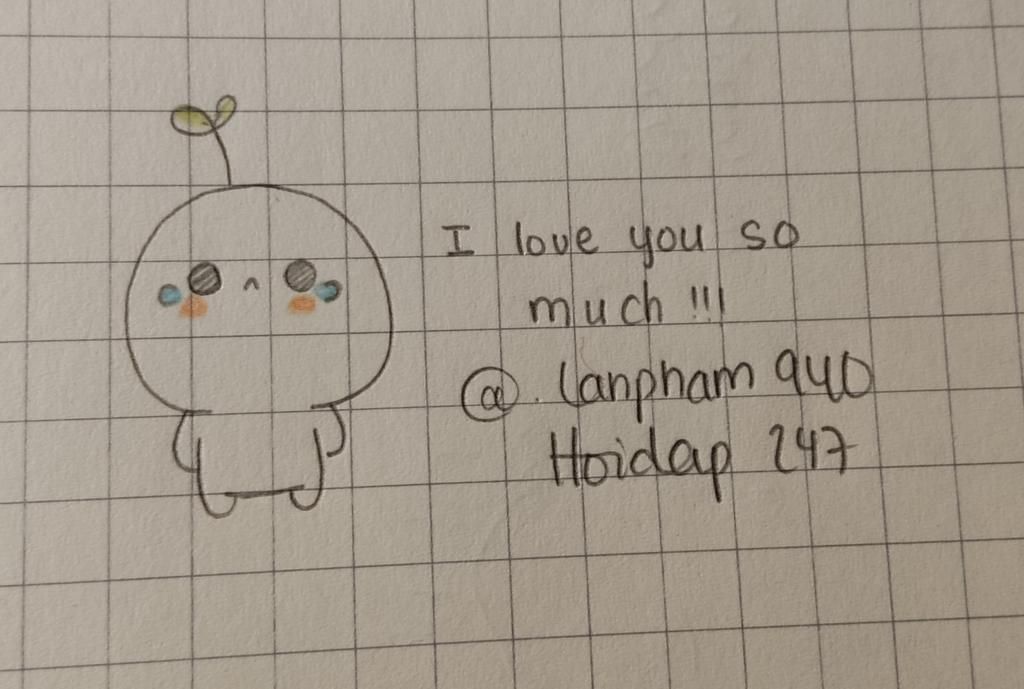 I love you so
much !!!
@. lanpham 940
Hoidap 247